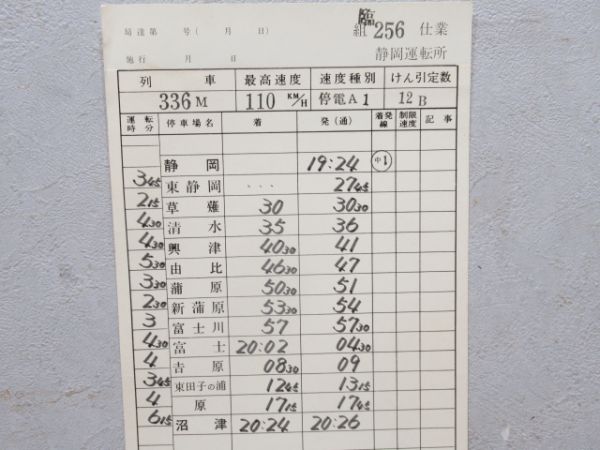 局達第 号( 月 日) 組臨256 仕業
施行 月 日 静岡運転所
列車 最高速度 速度種別 けん引定数
336M 110 KM/H 停電A1 12B
運転時分 停車場名 着 発(通) 着発線 制限速度 記事
静岡 19:24 中1
345
東静岡 ... 2745
215
草薙 30 3030
430
清水 35 36
430
興津 4030 41
530
由比 4630 47
330
蒲原 5030 51
230
新蒲原 5330 54
3
富士川 57 5730
430
富士 20:02 0430
4
吉原 0830 09
345
東田子の浦 1245 1315
4
原 1715 1745
615
沼津 20:24 20:26